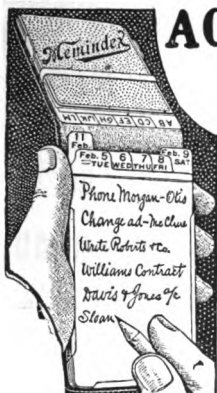 AC
Memindex
AB CD EF GH IJK LM
11
Feb.
Feb. 5 6 7 8 Feb. 9
TUE WED THU FRI SAT
Phone Morgan-Otis
Change ad-McClure
Write Roberts & Co.
Williams Contract
Davis & Jones a/c
Sloan